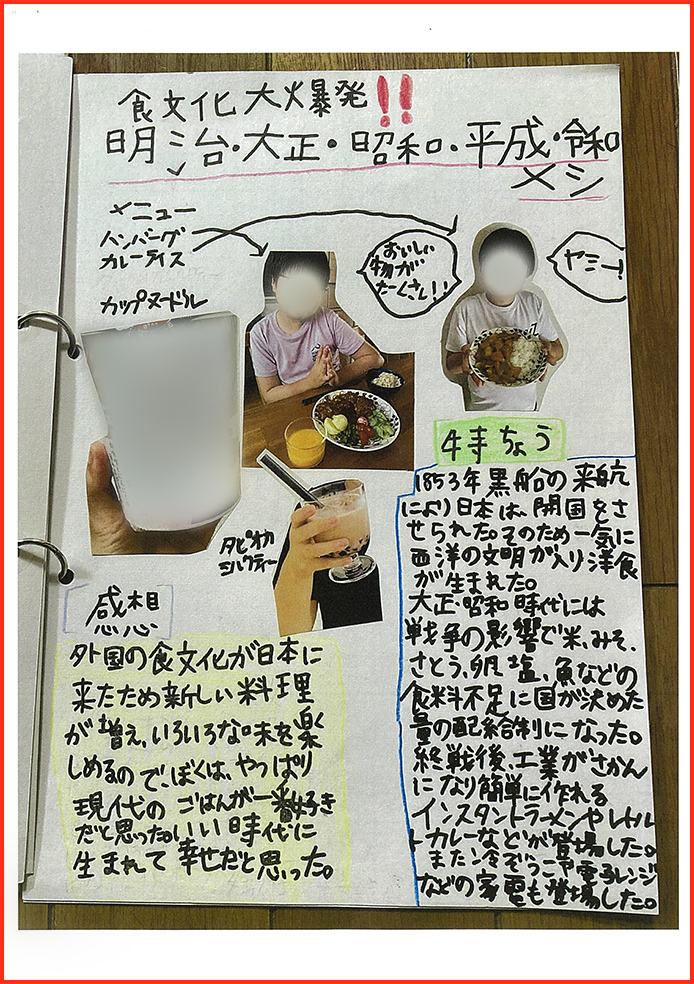 食文化大爆発!!
明治・大正・昭和・平成・令和
メシ
メニュー
ハンバーグ
カレーライス
おいしい
物が
たーくさん!!
ヤミー!
カップヌードル
タピオカ
ミルクティー
特ちょう
1853年黒船の来航
により日本は、開国をさ
せられた。そのため一気に
西洋の文明が入り洋食
が生まれた。
大正・昭和時代には
戦争の影響で米、みそ、
さとう、卵、塩、魚などの
食料不足に国が決めた
量の配給制になった。
終戦後、工業がさかん
になり簡単に作れる
インスタントラーメンやレトル
トカレーなどが登場した。
また冷ぞうこや電子レンジ
などの家電も登場した。
感想
外国の食文化が日本に
来たため新しい料理
が増え、いろいろな味を楽
しめるので、ぼくは、やっぱり
現代のごはんが一番好き
だと思った。いい時代に
生まれて幸せだと思った。